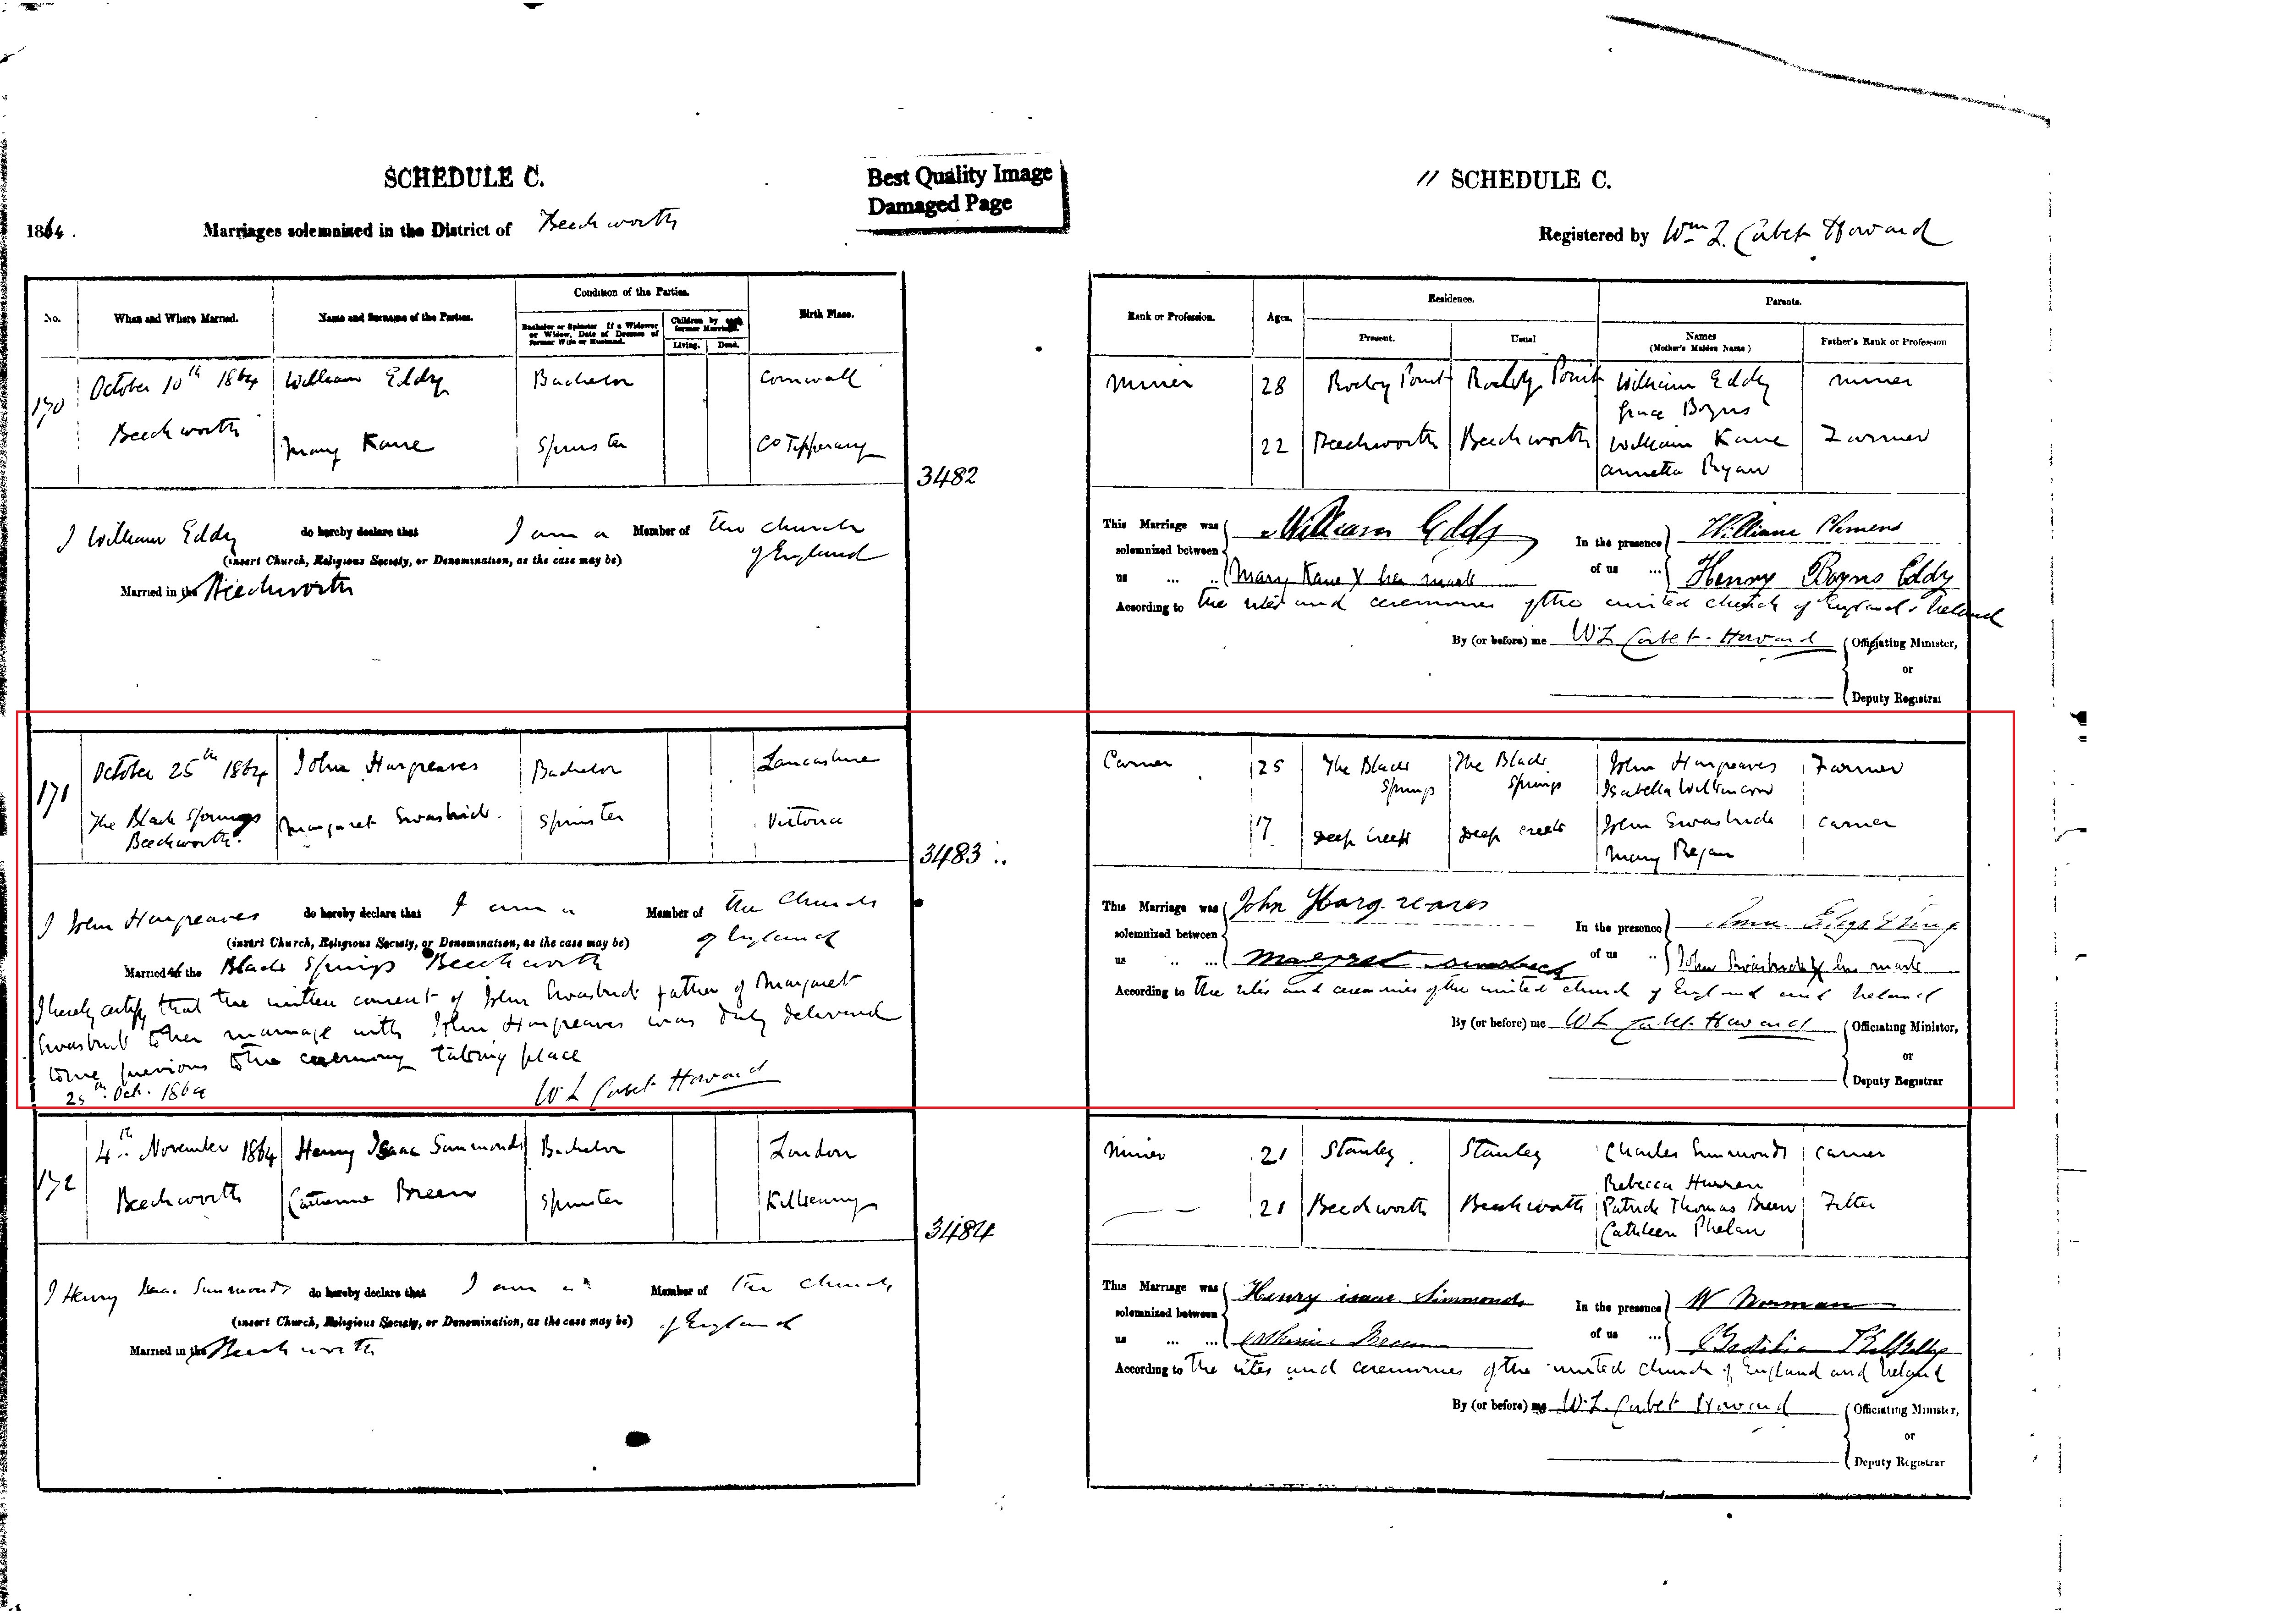 SCHEDULE C.
Best Quality Image
Damaged Page
1864.
Marriages solemnized in the District of Beechworth
No.
When and Where Married.
Name and Surname of the Parties.
Condition of the Parties.
Bachelor or Spinster If a Widower or Widow, Date of Decease of former Wife or Husband.
Children by each former Marriage.
Living.
Dead.
Birth Place.
170
October 10th 1864
William Eddy
Bachelor
Cornwall
Beechworth
Mary Kane
Spinster
Co Tipperary
3482
I William Eddy do hereby declare that I am a Member of the church
(insert Church, Religious Society, or Denomination, as the case may be) of England
Married in the Beechworth
171
October 25th 1864
John Hargreaves
Bachelor
Lancashire
The Black Springs
Beechworth.
Margaret Swasbrick.
Spinster
Victoria
3483
I John Hargreaves do hereby declare that I am a Member of the Church
(insert Church, Religious Society, or Denomination, as the case may be) of England
Married at the Black Springs Beechworth
I hereby certify that the written consent of John Swasbrick father of Margaret
Swasbrick to her marriage with John Hargreaves was duly delivered
to me previous to the ceremony taking place
25th Oct. 1864
W L Corbet Howard
172
4th November 1864
Henry Isaac Simmonds
Bachelor
London
Beechworth
Catherine Breen
Spinster
Kilkenny
3484
I Henry Isaac Simmonds do hereby declare that I am a Member of the church
(insert Church, Religious Society, or Denomination, as the case may be) of England
Married in the Beechworth
11 SCHEDULE C.
Registered by Wm L. Corbet Howard
Rank or Profession.
Ages.
Residence.
Present.
Usual
Parents.
Names
(Mother's Maiden Name)
Father's Rank or Profession
Miner
28
Rocky Point
Rocky Point
William Eddy
Grace Boyns
Miner
22
Beechworth
Beechworth
William Kane
Annetta Ryan
Farmer
This Marriage was William Eddy
solemnized between
us ... ... Mary Kane X her mark
In the presence William Clemens
of us ... Henry Boyns Eddy
According to the rites and ceremonies of the united church of England & Ireland
By (or before) me W L Corbet Howard
Officiating Minister,
or
Deputy Registrar
Carrier
25
The Black
Springs
The Black
Springs
John Hargreaves
Isabella Wilkinson
Farmer
17
Deep Creek
Deep Creek
John Swasbrick
Mary Regan
Carrier
This Marriage was John Hargreaves
solemnized between
us ... ... Margret Swasbrick
In the presence
of us ... John Swasbrick X his mark
According to the rites and ceremonies of the united church of England and Ireland
By (or before) me W L Corbet Howard
Officiating Minister,
or
Deputy Registrar
Miner
21
Stanley.
Stanley
Charles Simmonds
Rebecca Hurren
Carrier
21
Beechworth
Beechworth
Patrick Thomas Breen
Cathleen Phelan
Fitter
This Marriage was Henry isaac Simmonds
solemnized between
us ... ... Catherine Breen
In the presence W Norman
of us ...
According to the rites and ceremonies of the united church of England and Ireland
By (or before) me W. L. Corbet Howard
Officiating Minister,
or
Deputy Registrar